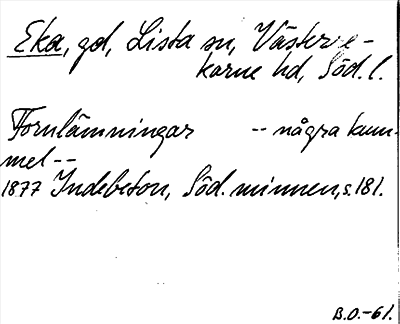 Eka, gd, Lista sn, Västerre-
karne hd, Söd. l.
Fornlämningar -- några kum-
mel --
1877 Indebetou, Söd. minnen, s. 181.
B.O.-61.